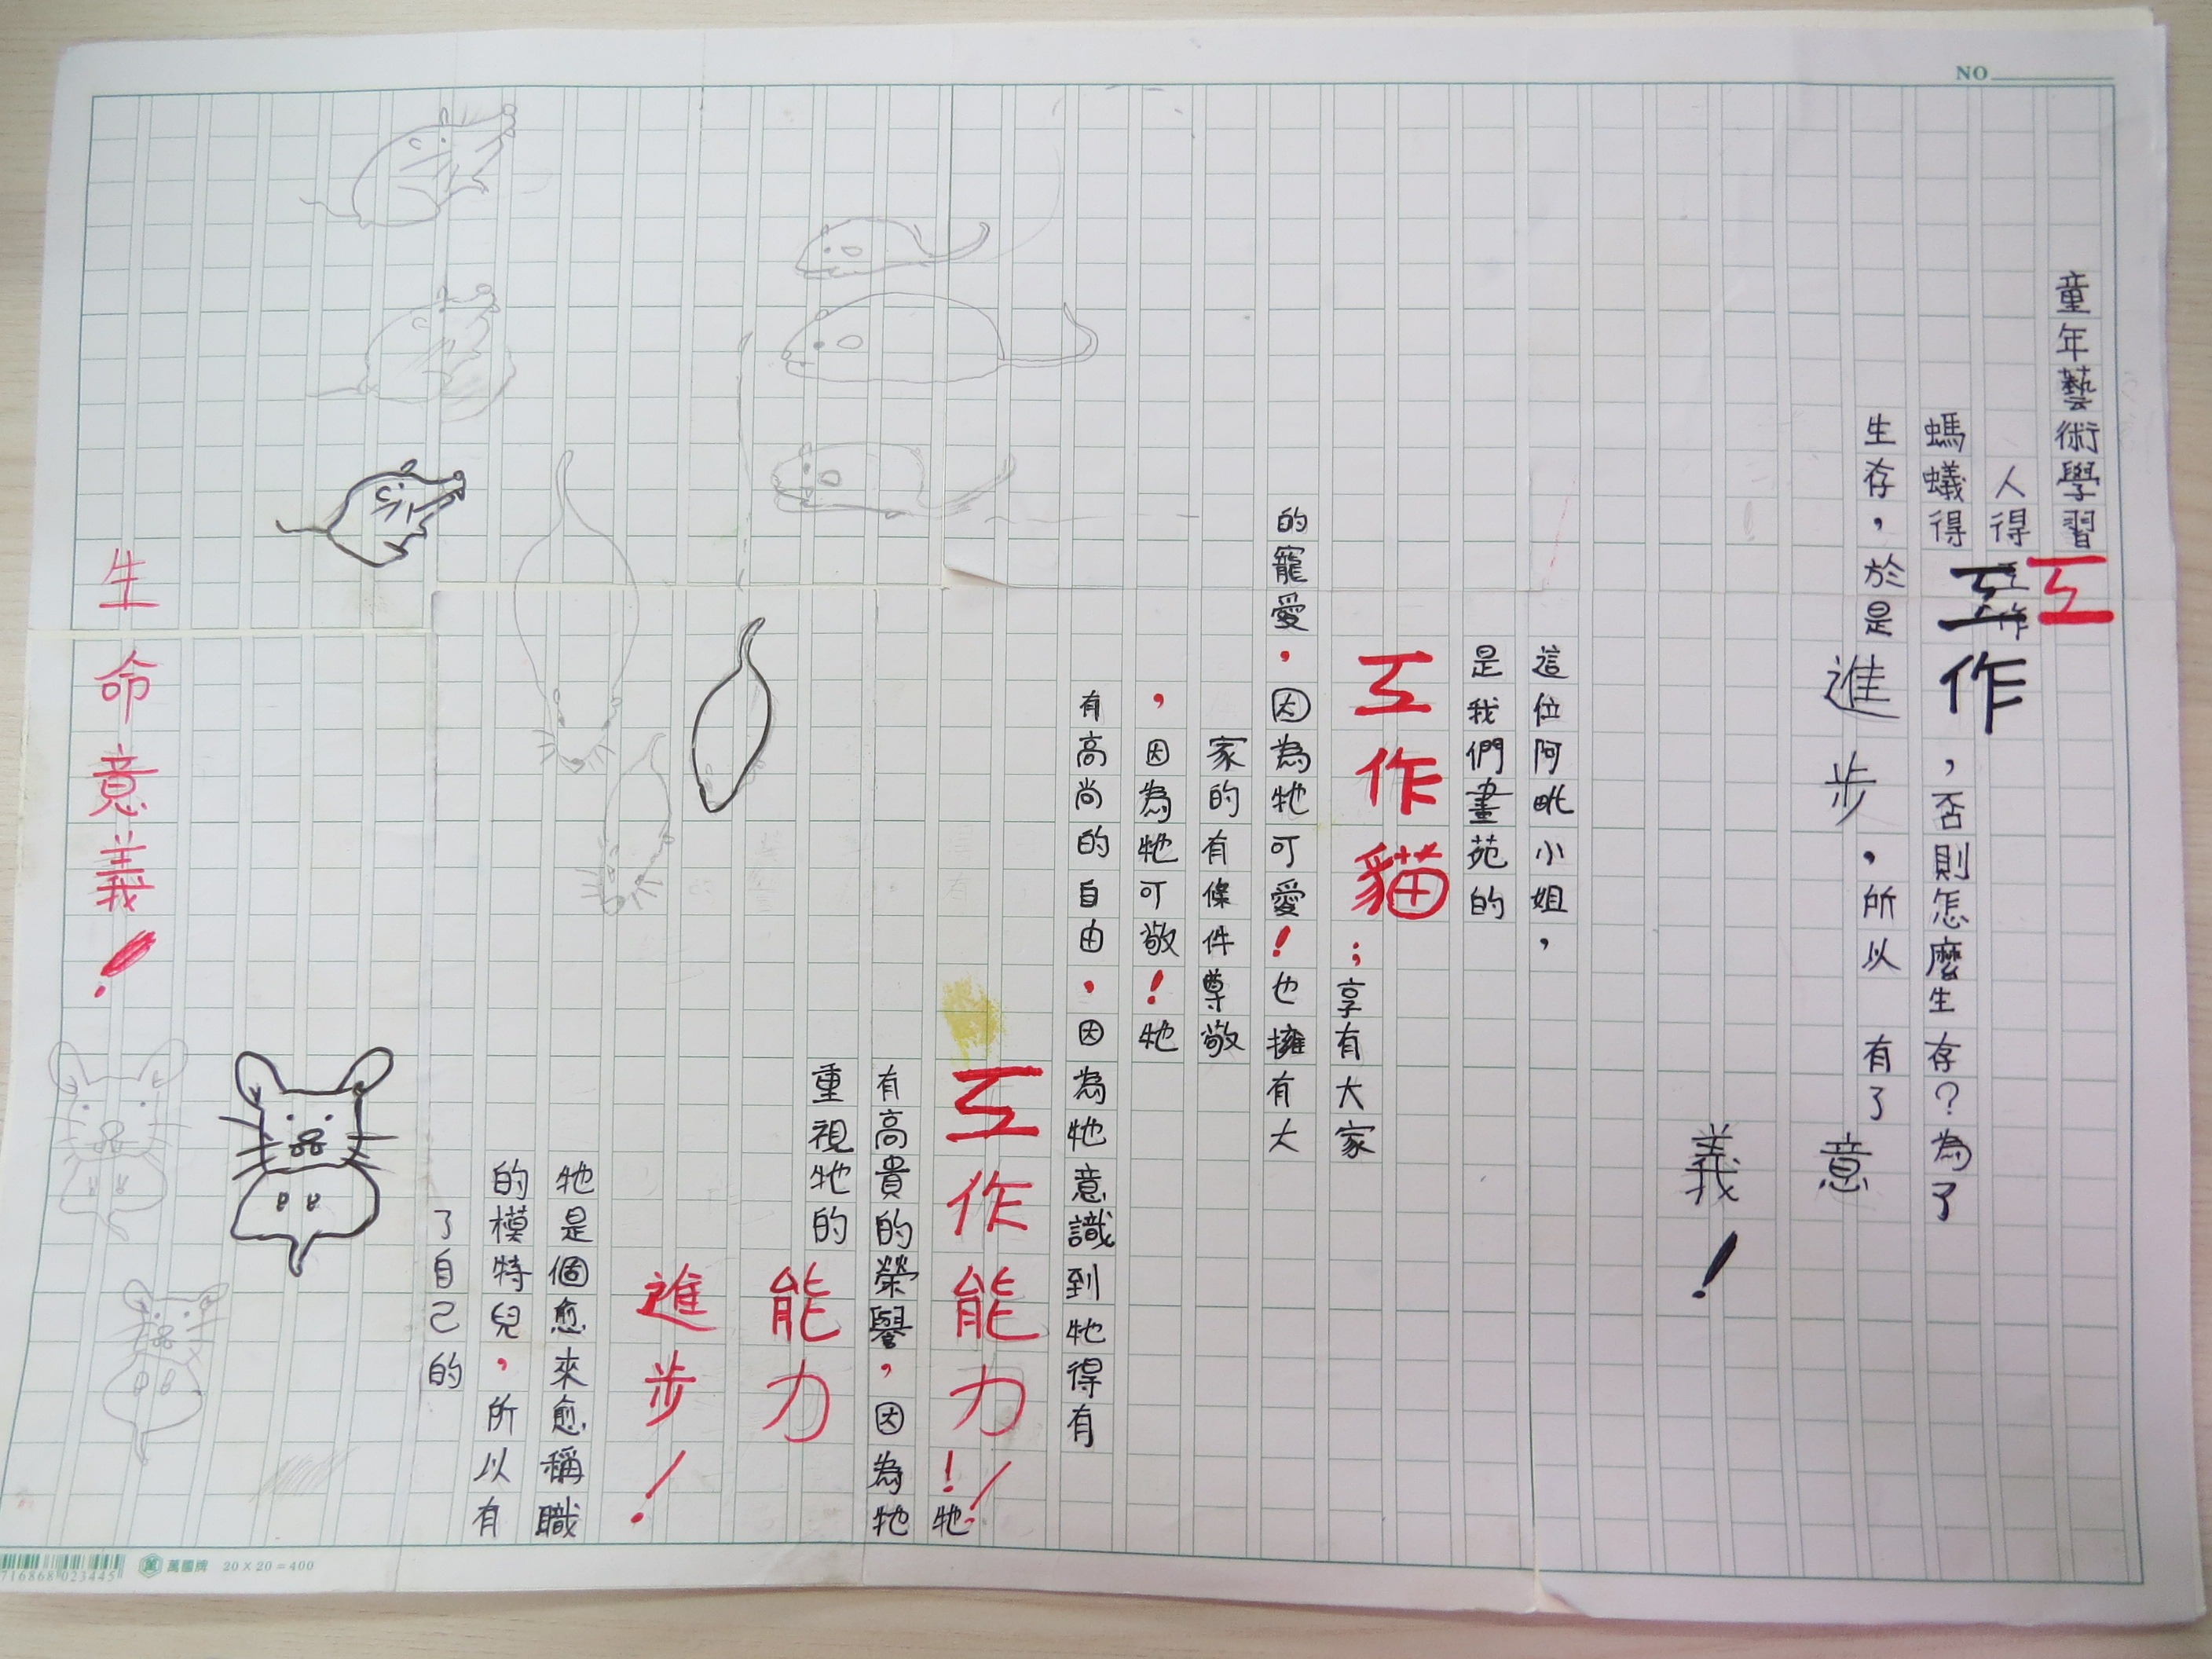 NO
童年藝術學習工
人得工作
螞蟻得工作，否則怎麼生存？為了
生存，於是進步，所以有了
意
義！
這位阿毗小姐，
是我們畫苑的
工作貓；享有大家
的寵愛，因為牠可愛！也擁有大
家的有條件尊敬
，因為牠可敬！牠
有高尚的自由，因為牠意識到牠得有
工作能力！！牠
有高貴的榮譽，因為牠
重視牠的
能力
進步！
牠是個愈來愈稱職
的模特兒，所以有
了自己的
生命意義！
716868 023445
萬國牌 20×20=400